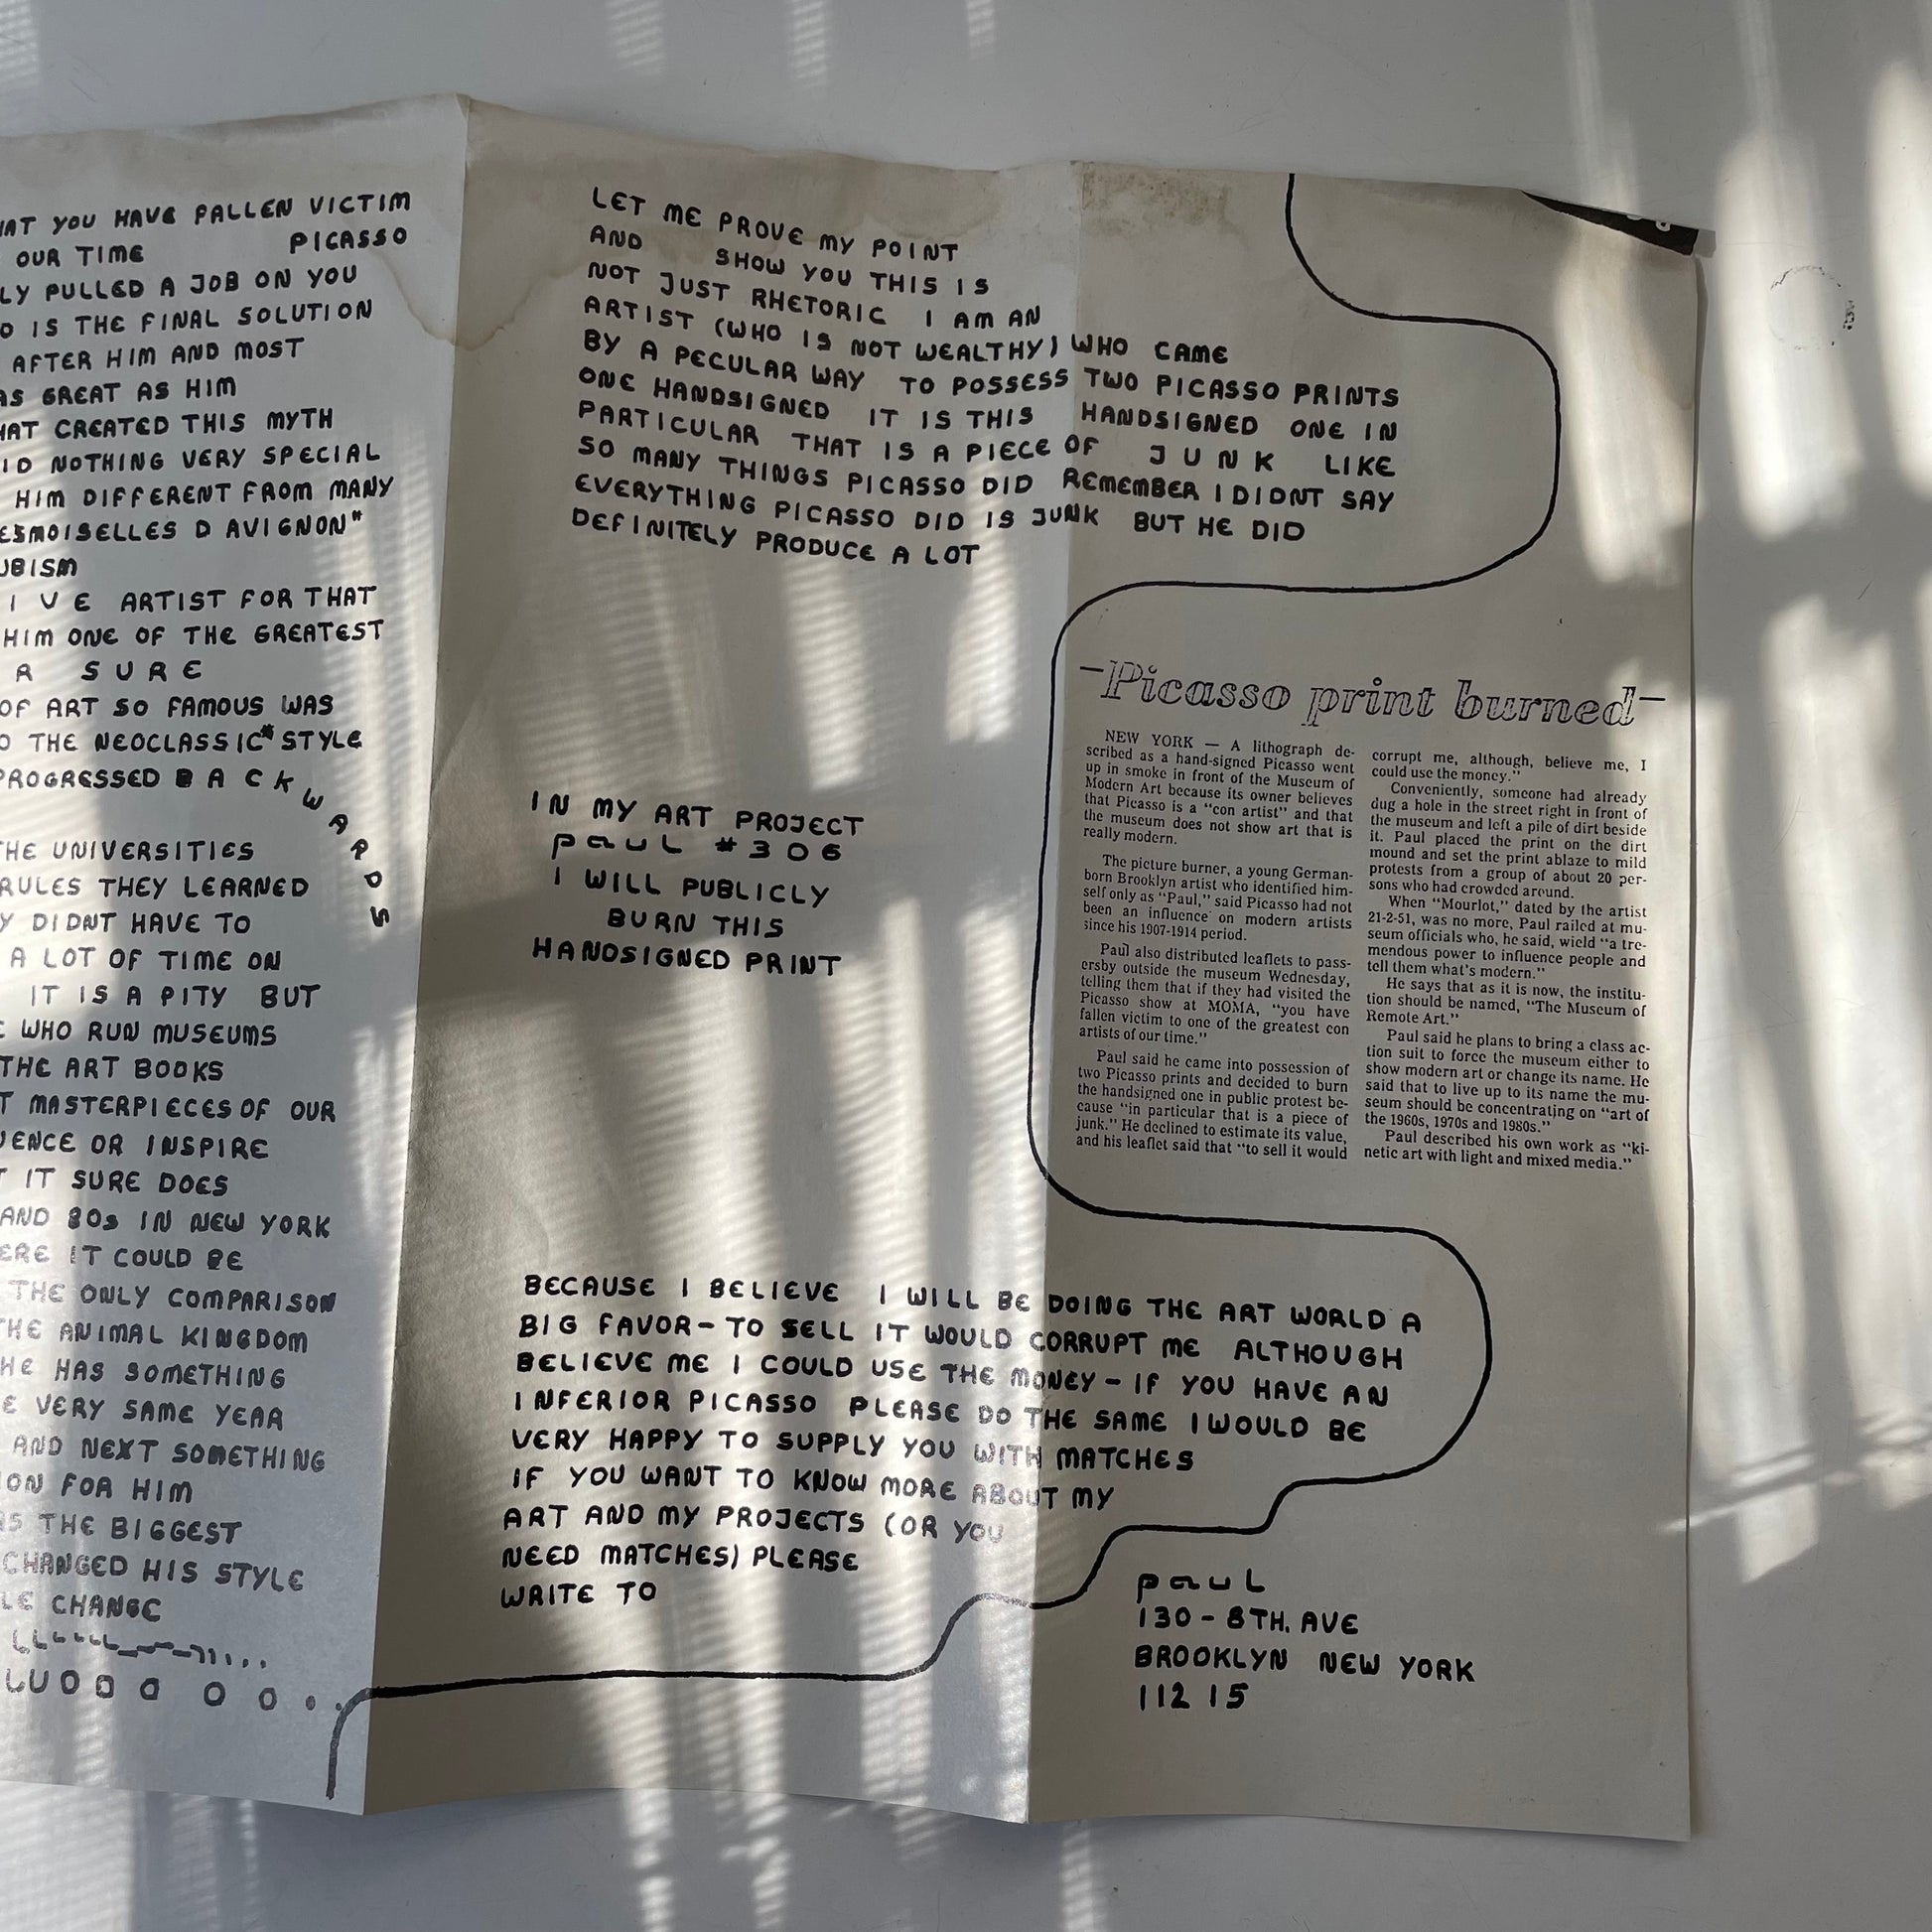 AT YOU HAVE PALLEN VICTIM
OUR TIME PICASSO
LY PULLED A JOB ON YOU
O IS THE FINAL SOLUTION
AFTER HIM AND MOST
AS GREAT AS HIM
HAT CREATED THIS MYTH
ID NOTHING VERY SPECIAL
HIM DIFFERENT FROM MANY
ESMOISELLES D AVIGNON*
UBISM
I V E ARTIST FOR THAT
HIM ONE OF THE GREATEST
R S U R E
OF ART SO FAMOUS WAS
O THE NEOCLASSIC* STYLE
PROGRESSED B A C K W A R D S
HE UNIVERSITIES
RULES THEY LEARNED
Y DIDNT HAVE TO
A LOT OF TIME ON
IT IS A PITY BUT
E WHO RUN MUSEUMS
THE ART BOOKS
T MASTERPIECES OF OUR
UENCE OR INSPIRE
T IT SURE DOES
AND 80s IN NEW YORK
ERE IT COULD BE
THE ONLY COMPARISON
HE ANIMAL KINGDOM
HE HAS SOMETHING
E VERY SAME YEAR
AND NEXT SOMETHING
ION FOR HIM
AS THE BIGGEST
CHANGED HIS STYLE
LE CHANGE
LET ME PROVE MY POINT
AND SHOW YOU THIS IS
NOT JUST RHETORIC I AM AN
ARTIST (WHO IS NOT WEALTHY) WHO CAME
BY A PECULAR WAY TO POSSESS TWO PICASSO PRINTS
ONE HANDSIGNED IT IS THIS HANDSIGNED ONE IN
PARTICULAR THAT IS A PIECE OF J U N K LIKE
SO MANY THINGS PICASSO DID REMEMBER I DIDNT SAY
EVERYTHING PICASSO DID IS JUNK BUT HE DID
DEFINITELY PRODUCE A LOT
IN MY ART PROJECT
paul #306
I WILL PUBLICLY
BURN THIS
HANDSIGNED PRINT
BECAUSE I BELIEVE I WILL BE DOING THE ART WORLD A
BIG FAVOR - TO SELL IT WOULD CORRUPT ME ALTHOUGH
BELIEVE ME I COULD USE THE MONEY - IF YOU HAVE AN
INFERIOR PICASSO PLEASE DO THE SAME I WOULD BE
VERY HAPPY TO SUPPLY YOU WITH MATCHES
IF YOU WANT TO KNOW MORE ABOUT MY
ART AND MY PROJECTS (OR YOU
NEED MATCHES) PLEASE
WRITE TO
-Picasso print burned-
NEW YORK — A lithograph de-
scribed as a hand-signed Picasso went
up in smoke in front of the Museum of
Modern Art because its owner believes
that Picasso is a "con artist" and that
the museum does not show art that is
really modern.
The picture burner, a young German-
born Brooklyn artist who identified him-
self only as "Paul," said Picasso had not
been an influence on modern artists
since his 1907-1914 period.
Paul also distributed leaflets to pass-
ersby outside the museum Wednesday,
telling them that if they had visited the
Picasso show at MOMA, "you have
fallen victim to one of the greatest con
artists of our time."
Paul said he came into possession of
two Picasso prints and decided to burn
the handsigned one in public protest be-
cause "in particular that is a piece of
junk." He declined to estimate its value,
and his leaflet said that "to sell it would
corrupt me, although, believe me, I
could use the money."
Conveniently, someone had already
dug a hole in the street right in front of
the museum and left a pile of dirt beside
it. Paul placed the print on the dirt
mound and set the print ablaze to mild
protests from a group of about 20 per-
sons who had crowded around.
When "Mourlot," dated by the artist
21-2-51, was no more, Paul railed at mu-
seum officials who, he said, wield "a tre-
mendous power to influence people and
tell them what's modern."
He says that as it is now, the institu-
tion should be named, "The Museum of
Remote Art."
Paul said he plans to bring a class ac-
tion suit to force the museum either to
show modern art or change its name. He
said that to live up to its name the mu-
seum should be concentrating on "art of
the 1960s, 1970s and 1980s."
Paul described his own work as "ki-
netic art with light and mixed media."
paul
130 - 8TH. AVE
BROOKLYN NEW YORK
11215